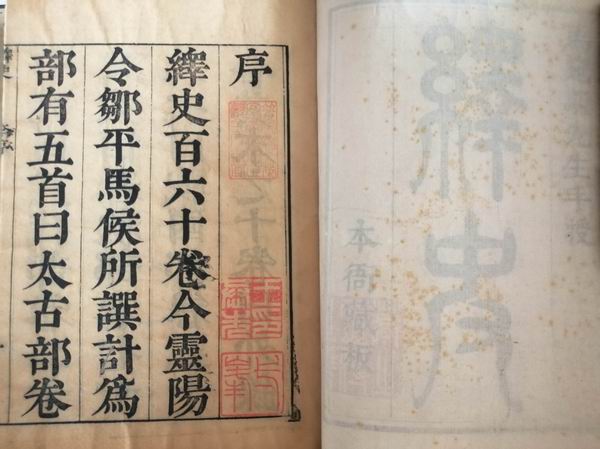 生手授
繹史
本衙藏板
序
繹史百六十卷今靈陽
令鄒平馬侯所譔計爲
部有五首曰太古部卷